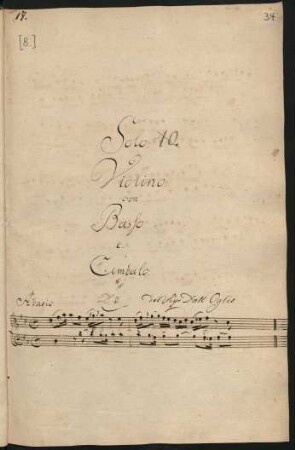 17. 34
[8.]
Solo 10.
Violino
con
Basso
e
Cimbalo
Adagio del Sigr Dall Oglio